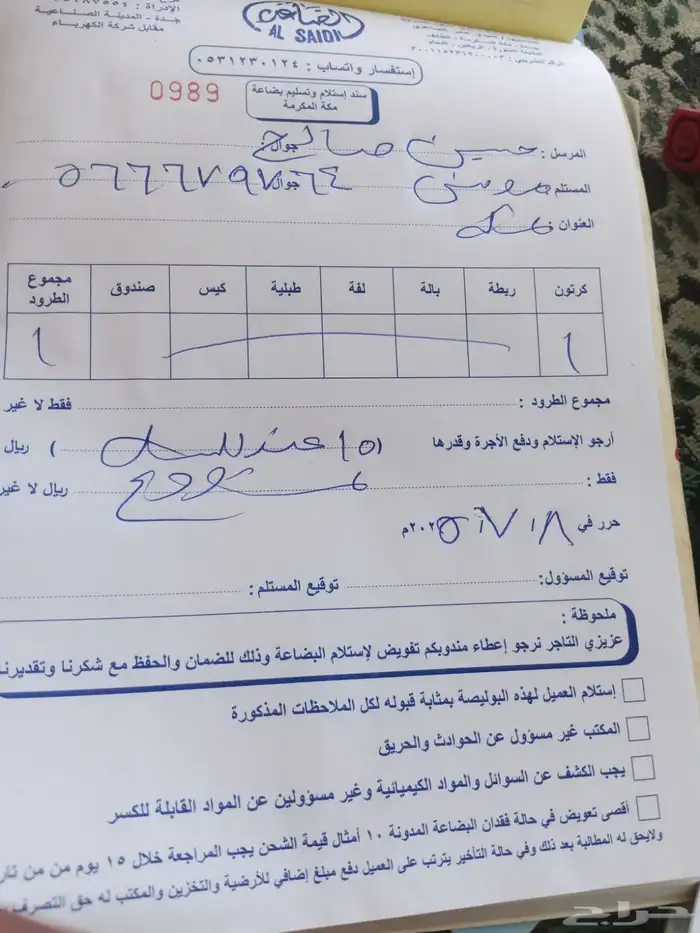 الصاعدي
AL SAIDI
الإدارة :
جدة - المدينة الصناعية
مقابل شركة الكهرباء
إستفسار واتساب : ٠٥٣١٢٣٠١٢٤
0989
سند إستلام وتسليم بضاعة
مكة المكرمة
المرسل : حسين صالح جوال :
المستلم موسى جوال ٠٥٦٦٦٧٩٧٦٤
العنوان :
كرتون ربطة بالة لفة طبلية كيس صندوق مجموع الطرود
١ ١
مجموع الطرود : فقط لا غير
أرجو الإستلام ودفع الأجرة وقدرها ( ١٥ ) ريال
فقط : ريال لا غير
حرر في ١٨ / ٧ / ٢٠٢٥م
توقيع المسؤول : توقيع المستلم :
ملحوظة :
عزيزي التاجر نرجو إعطاء مندوبكم تفويض لإستلام البضاعة وذلك للضمان والحفظ مع شكرنا وتقديرنا
إستلام العميل لهذه البوليصة بمثابة قبوله لكل الملاحظات المذكورة
المكتب غير مسؤول عن الحوادث والحريق
يجب الكشف عن السوائل والمواد الكيميائية وغير مسؤولين عن المواد القابلة للكسر
أقصى تعويض في حالة فقدان البضاعة المدونة ١٠ أمثال قيمة الشحن يجب المراجعة خلال ١٥ يوم من من
ولايحق له المطالبة بعد ذلك وفي حالة التأخير يترتب على العميل دفع مبلغ إضافي للأرضية والتخزين والمكتب له حق التصرف
حراج